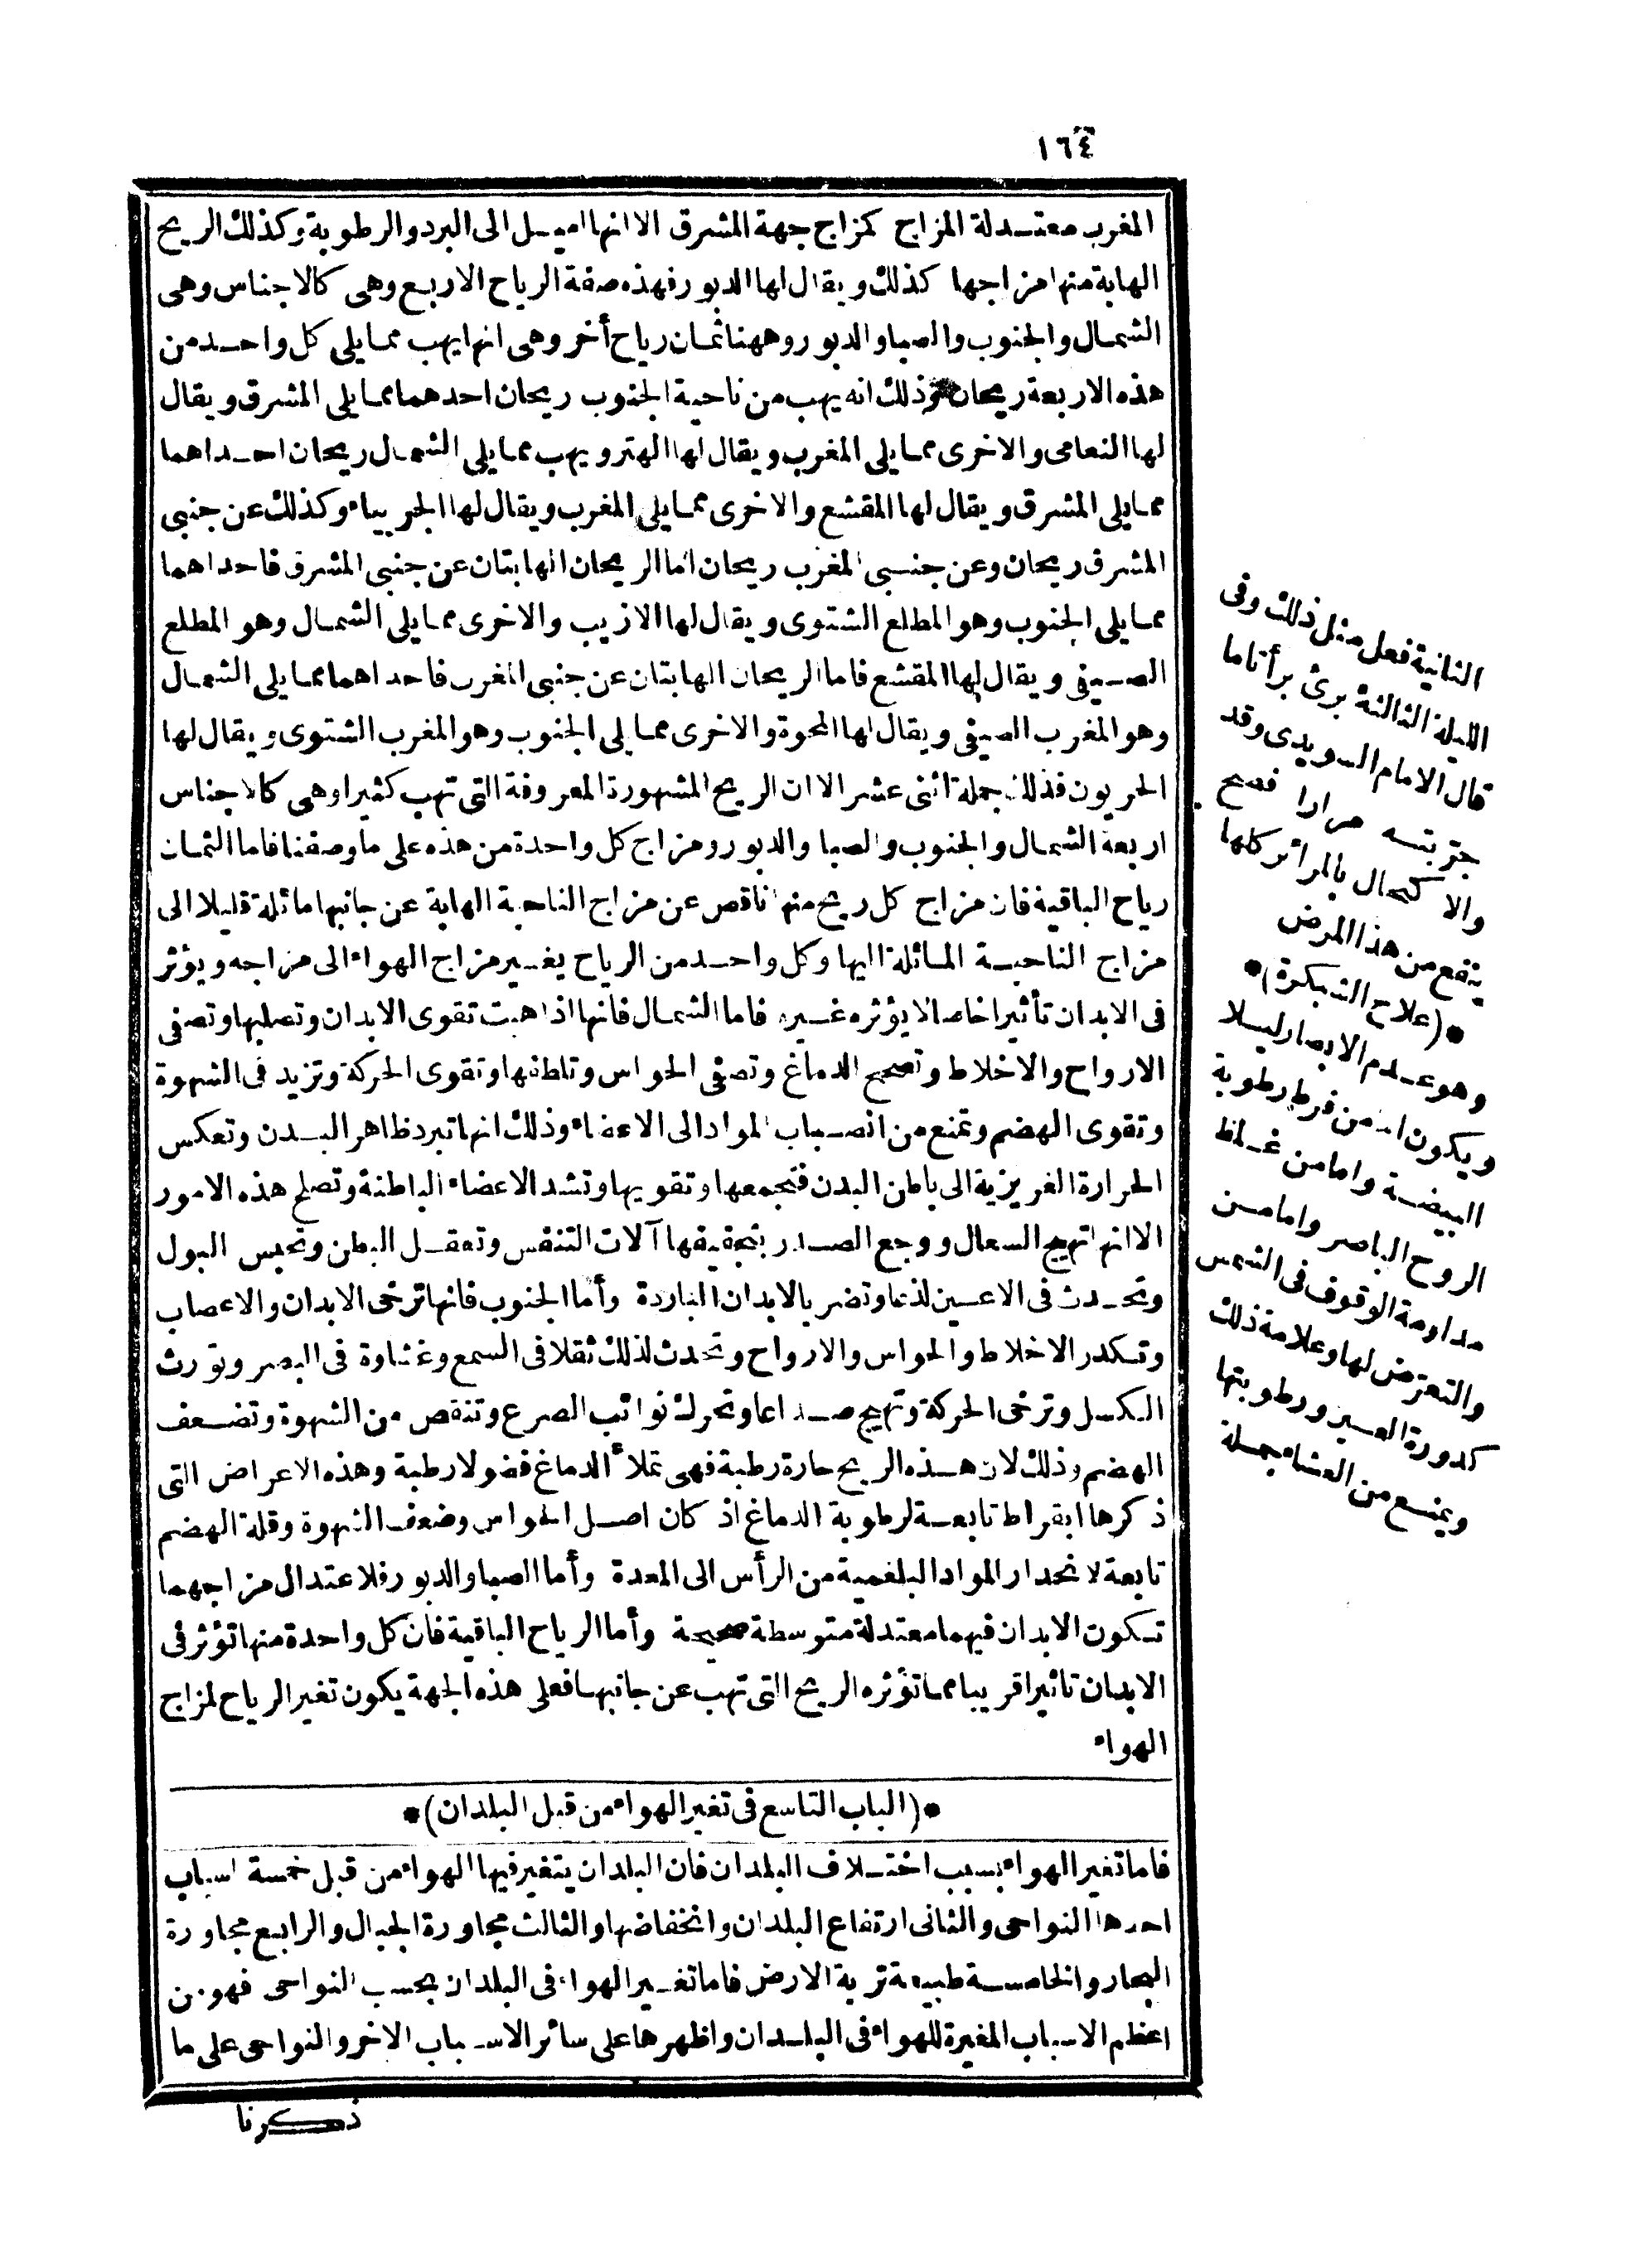 ١٦٤
المغرب معتدلة المزاج كمزاج جهة المشرق الا انها اميل الى البرد والرطوبة وكذلك الريح
الهابة منها مزاجها كذلك ويقال لها الدبور فهذه صفة الرياح الاربع وهى كالاجناس وهى
الشمال والجنوب والصبا والدبور وههنا ثمان رياح أخر وهى انها يهب مما يلى كل واحد من
هذه الاربعة ريحان وذلك انه يهب من ناحية الجنوب ريحان احدهما مما يلى المشرق ويقال
لها النعامى والاخرى مما يلى المغرب ويقال لها الهتر ويهب مما يلى الشمال ريحان احداهما
مما يلى المشرق ويقال لها المقشع والاخرى مما يلى المغرب ويقال لها الجربياء وكذلك عن جنبى
المشرق ريحان وعن جنبى المغرب ريحان اما الريحان الهابتان عن جنبى المشرق فاحداهما
مما يلى الجنوب وهو المطلع الشتوى ويقال لها الازيب والاخرى مما يلى الشمال وهو المطلع
الصيفى ويقال لها المقشع فاما الريحان الهابتان عن جنبى المغرب فاحداهما مما يلى الشمال
وهو المغرب الصيفى ويقال لها المحوة والاخرى مما يلى الجنوب وهو المغرب الشتوى ويقال لها
الحريون فذلك جملة اثنى عشر الا ان الريح المشهورة المعروفة التى تهب كثيرا وهى كالاجناس
اربعة الشمال والجنوب والصبا والدبور ومزاج كل واحدة من هذه على ما وصفنا فاما الثمان
رياح الباقية فان مزاج كل ريح منها ناقص عن مزاج الناحية الهابة عن جانبها مائلة قليلا الى
مزاج الناحية المائلة اليها وكل واحد من الرياح يغير مزاج الهواء الى مزاجه ويؤثر
فى الابدان تأثيرا خاصا لا يؤثره غيره فاما الشمال فانها اذا هبت تقوى الابدان وتصلبها وتصفى
الارواح والاخلاط وتصحح الدماغ وتصفى الحواس وتلطفها وتقوى الحركة وتزيد فى الشهوة
وتقوى الهضم وتمنع من انصباب المواد الى الاعضاء وذلك انها تبرد ظاهر البدن وتعكس
الحرارة الغريزية الى باطن البدن فتجمعها وتقويها وتشد الاعضاء الباطنة وتصلح هذه الامور
الا انها تهيج السعال ووجع الصدر بتجفيفها آلات التنفس وتعقل البطن وتحبس البول
وتحدث فى الاعين لذعا وتضر بالابدان الباردة وأما الجنوب فانها ترخى الابدان والاعصاب
وتكدر الاخلاط والحواس والارواح وتحدث لذلك ثقلا فى السمع وغشاوة فى البصر وتورث
الكسل وترخى الحركة وتهيج صداعا وتحرك نوائب الصرع وتنقص من الشهوة وتضعف
الهضم وذلك لان هذه الريح حارة رطبة فهى تملأ الدماغ فضولا رطبة وهذه الاعراض التى
ذكرها ابقراط تابعة لرطوبة الدماغ اذ كان اصل الحواس وضعف الشهوة وقلة الهضم
تابعة لانحدار المواد البلغمية من الرأس الى المعدة وأما الصبا والدبور فلاعتدال مزاجهما
تكون الابدان فيهما معتدلة متوسطة صحيحة وأما الرياح الباقية فان كل واحدة منها تؤثر فى
الابدان تاثيرا قريبا مما تؤثره الريح التى تهب عن جانبها فعلى هذه الجهة يكون تغير الرياح لمزاج
الهواء
*(الباب التاسع فى تغير الهواء من قبل البلدان)*
فاما تغير الهواء بسبب اختلاف البلدان فان البلدان يتغير فيها الهواء من قبل خمسة اسباب
احدها النواحى والثانى ارتفاع البلدان وانخفاضها والثالث مجاورة الجبال والرابع مجاورة
البحار والخامسة طبيعة تربة الارض فاما تغير الهواء فى البلدان بحسب النواحى فهو من
اعظم الاسباب المغيرة للهواء فى البلدان واظهرها على سائر الاسباب الاخر والنواحى على ما
ذكرنا
الثانية فعل مثل ذلك وفى
الليلة الثالثة برئ برأ تاما
قال الامام السويدى وقد
جربته مرارا فصح
والاكتحال بالمرائر كلها
ينفع من هذا المرض
*(علاج الشبكرة)*
وهو عدم الابصار ليلا
ويكون اما من فرط رطوبة
البيضة واما من غلظ
الروح الباصر واما من
مداومة الوقوف فى الشمس
والتعرض لها وعلامة ذلك
كدورة العين ورطوبتها
ويمنع من العشاء جملة